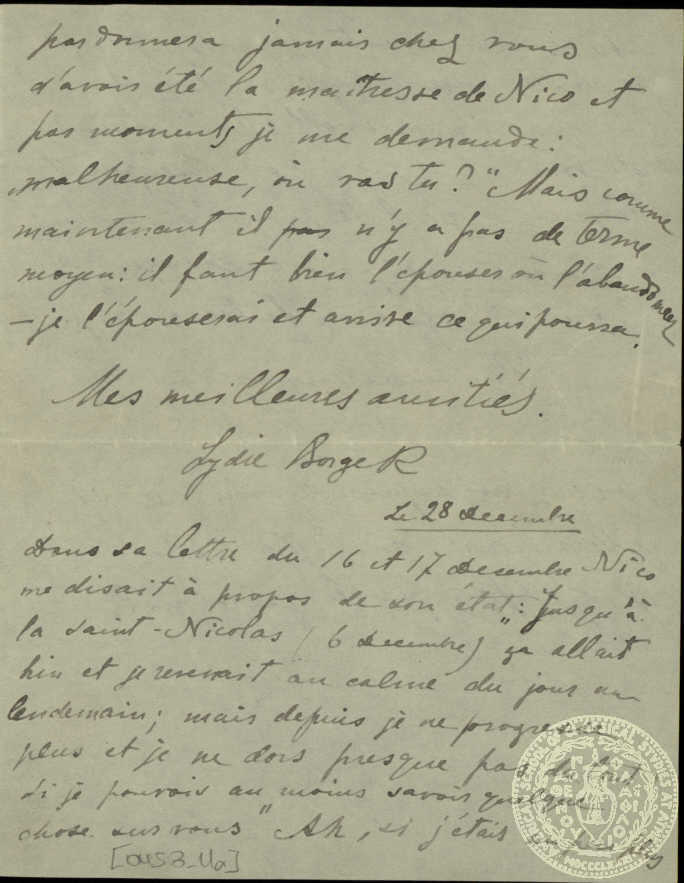 pardonnera jamais chez vous
d'avoir été la maîtresse de Nico et
par moments je me demande :
„malheureuse, où vas tu ? " Mais comme
maintenant il pas n'y a pas de terme
moyen : il faut bien l'épouser où l'abandonner
– je l'épouserai et arrive ce qui pourra.
Mes meilleures amitiés.
Lydie Borger
Le 28 decembre
Dans sa lettre du 16 et 17 decembre Nico
me disait à propos de son état : „Jusqu'à
la saint-Nicolas (6 decembre) ça allait
bien et je revenait au calme du jour au
lendemain ; mais depuis je ne progresse
plus et je ne dors presque pas du tout
Si je pouvais au moins savoir quelque
chose sur vous " Ah, si j'étais
[OYS3_11a]